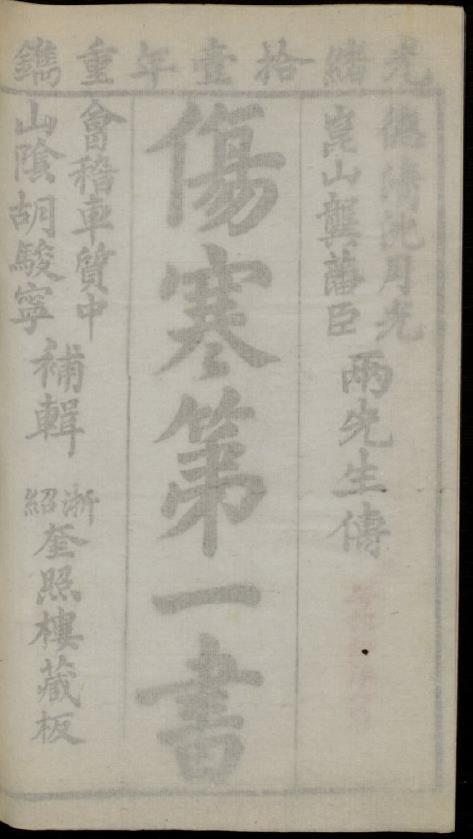 光緒拾壹年重鐫
德清沈月光
崑山龔藩臣
兩先生傳
傷寒第一書
會稽車質中
山陰胡駿寧
補輯
浙
紹
奎照樓藏板